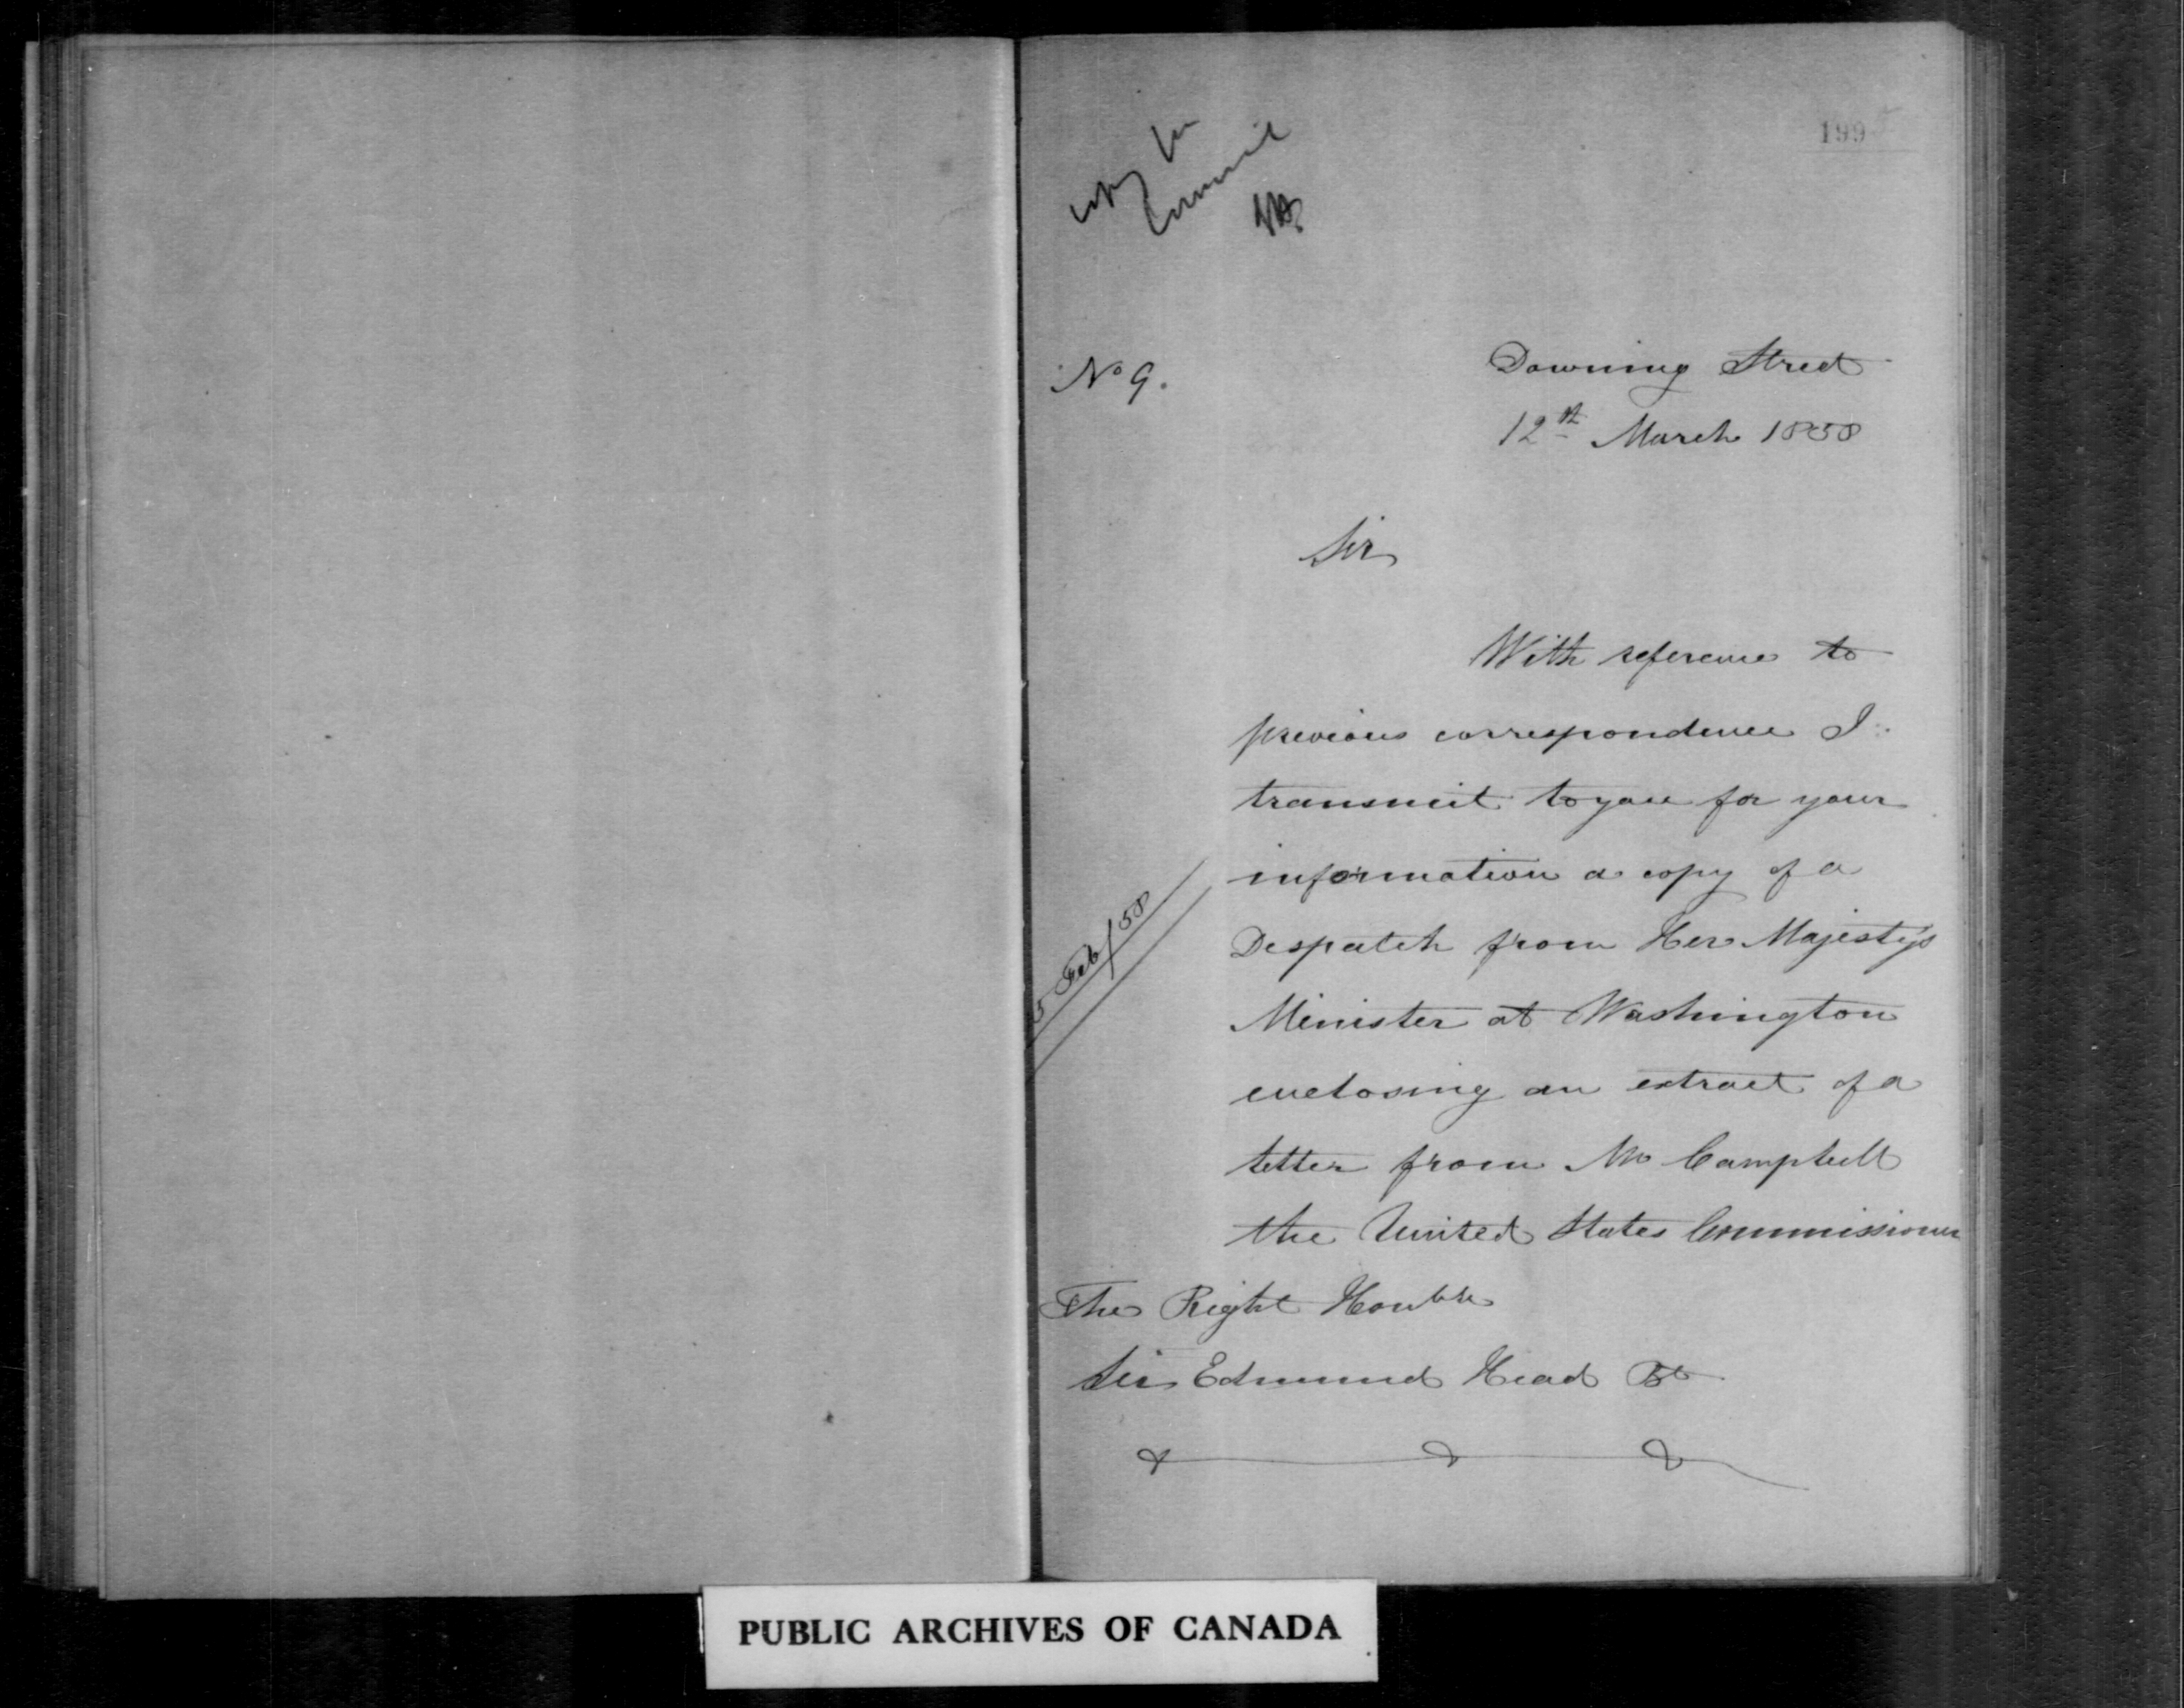 199
Copy for
Council
No 9.
Downing Street
12th March 1858
Sir
With reference to
previous correspondence I
transmit to you for your
information a copy of a
5 Feb/58
Despatch from Her Majesty's
Minister at Washington
enclosing an extract of a
letter from Mr Campbell
the United States Commissioner
The Right Honble
Sir Edmund Head Bt
PUBLIC ARCHIVES OF CANADA